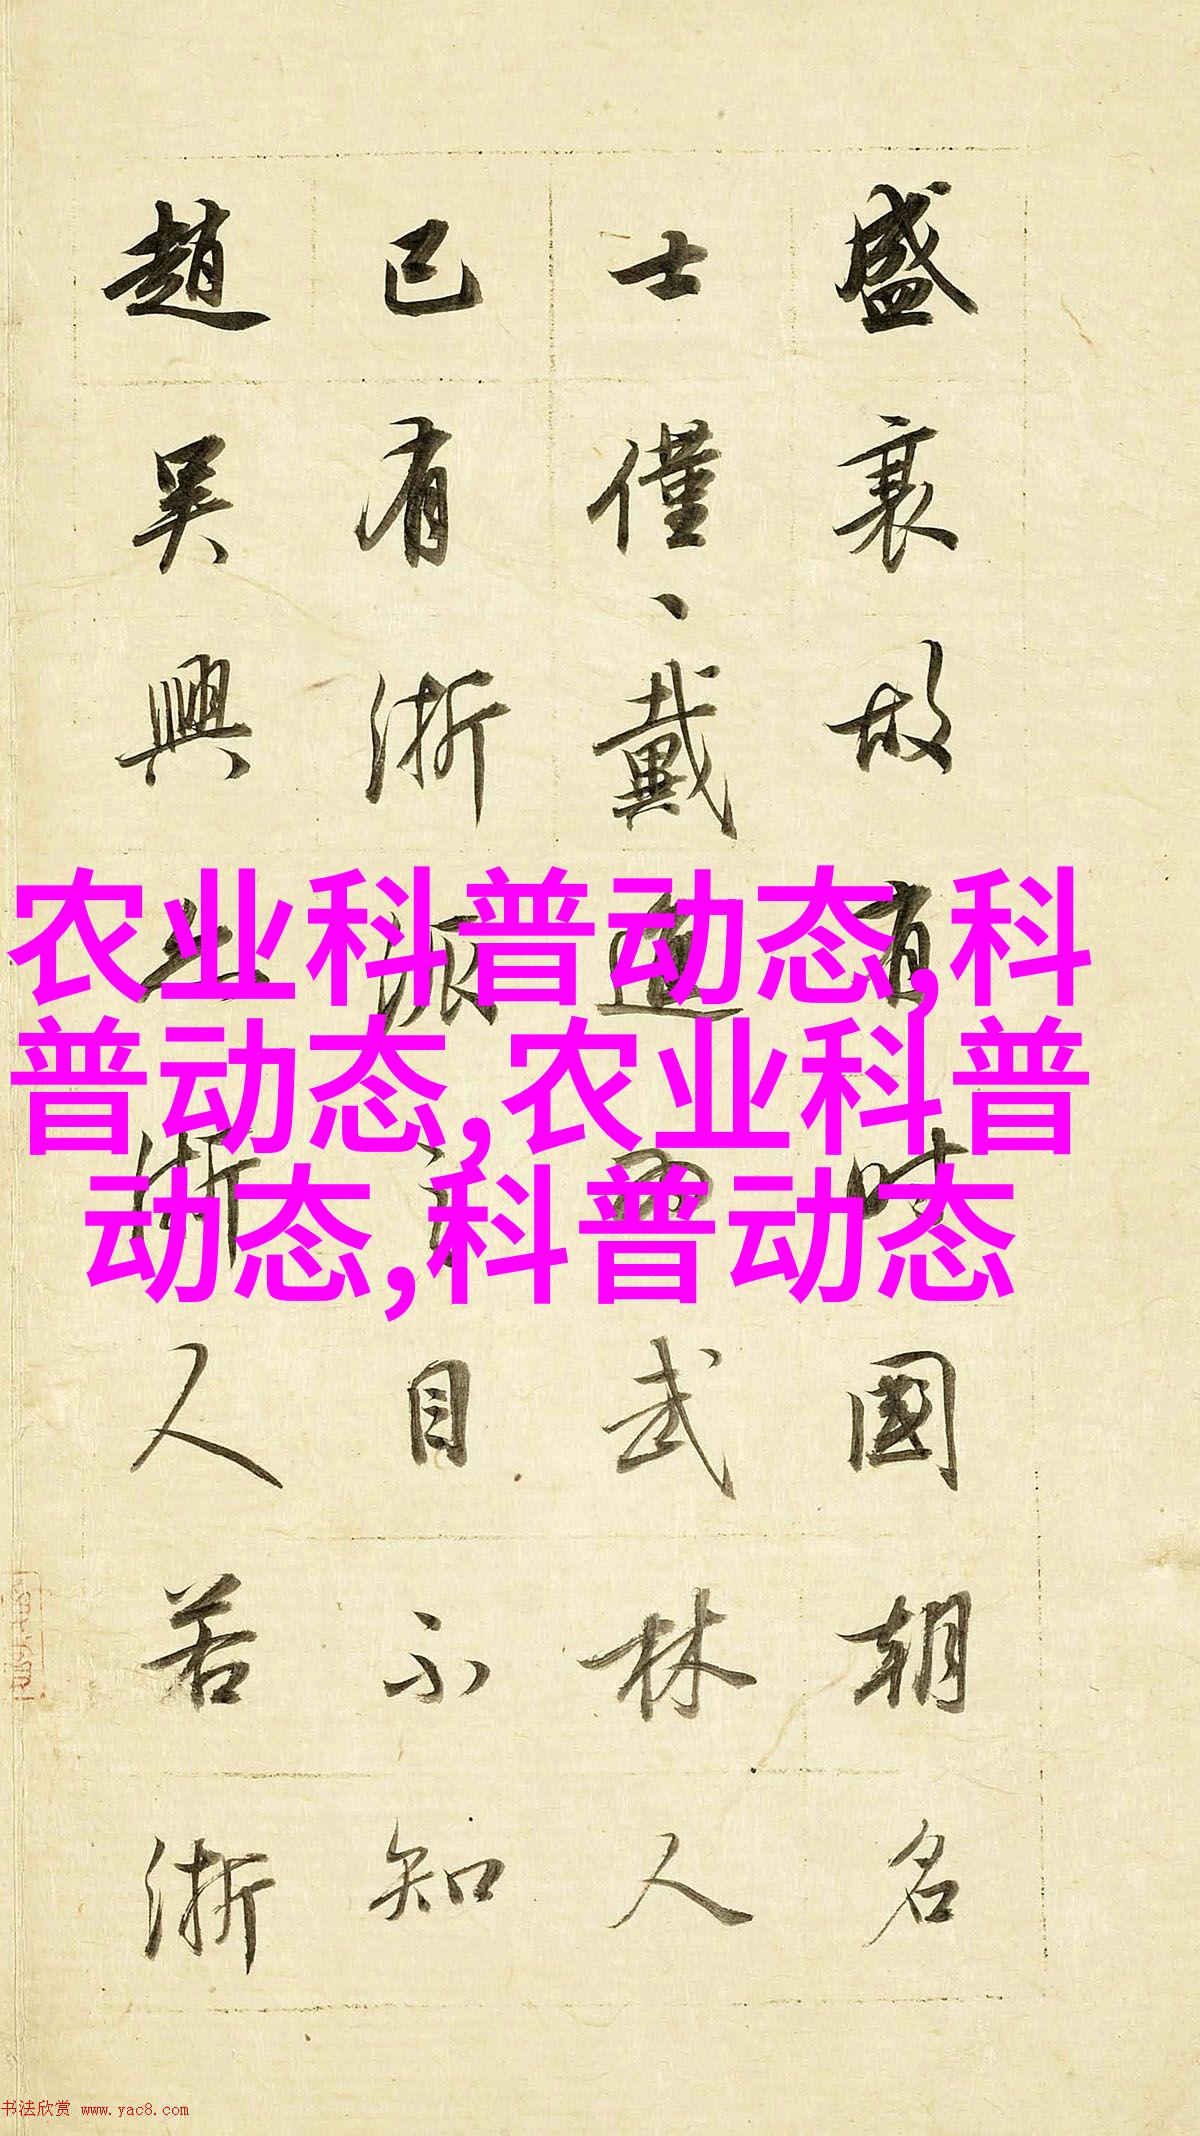 盛衰故有時國朝名
士僅、戴進武林人
已有浙派目不知
趙吳興浙人若浙
农业科普动态,科
普动态,农业科普
动态,科普动态
书法欣赏 www.yac8.com